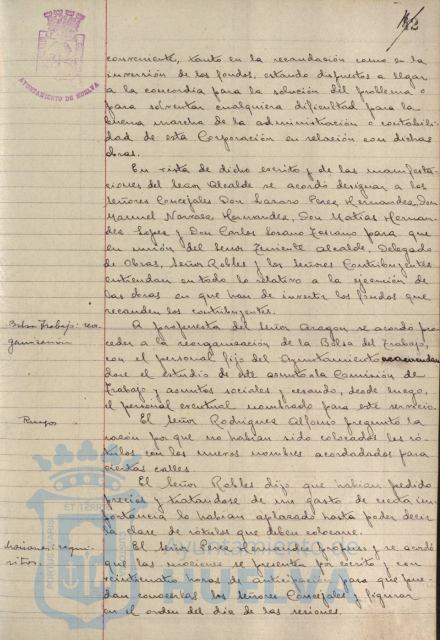 42
AYUNTAMIENTO DE HUELVA
conveniente, tanto en la recaudación como en la
inversión de los fondos, estando dispuestos a llegar
a la concordia para la solución del problema o
para solventar cualquiera dificultad para la
buena marcha de la administración o contabili-
dad de esta Corporación en relación con dichas
obras.
En vista de dicho escrito y de las manifesta-
ciones del Señor Alcalde se acordó designar a los
Señores Concejales Don Lázaro Perez Hernandez, Don
Manuel Narvaez Hernandez, Don Matías Hernan-
dez Lopez y Don Carlos Lozano Toscano para que
en unión del Señor Teniente Alcalde, Delegado
de Obras, Señor Robles y los Señores Contribuyentes
entiendan en todo lo relativo a la ejecución de
las obras en que han de invertir los fondos que
recauden los contribuyentes.
Bolsa Trabajo: reor-
ganización
A propuesta del Señor Aragon se acordó pro-
ceder a la reorganización de la Bolsa del Trabajo,
con el personal fijo del Ayuntamiento encomendan
dose el estudio de este asunto a la Comisión de
Trabajo y asuntos sociales y cesando, desde luego,
el personal eventual nombrado para este servicio.
Ruegos
El Señor Rodriguez Alfonso preguntó la
razón por que no habian sido colocados los ró-
tulos con los nuevos nombres acordadados para
ciertas calles.
El Señor Robles dijo que habian pedido
precios y tratandose de un gasto de cierta im-
portancia lo habian aplazado hasta poder decir
la clase de rótulos que deben colocarse.
Mociones: requi-
sitos.
El Señor Perez Hernandez propuso y se acordó
que las mociones se presenten por escrito y con
veinticuatro horas de anticipación para que pue-
dan conocerlas los Señores Concejales y figurar
en el orden del día de las sesiones.